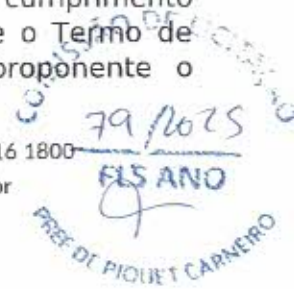 cumprimento
e o Termo de
proponente o
COMISSÃO DE LICITAÇÃO
79/2025
16 1800
or
FLS ANO
PREF DE PIQUET CARNEIRO